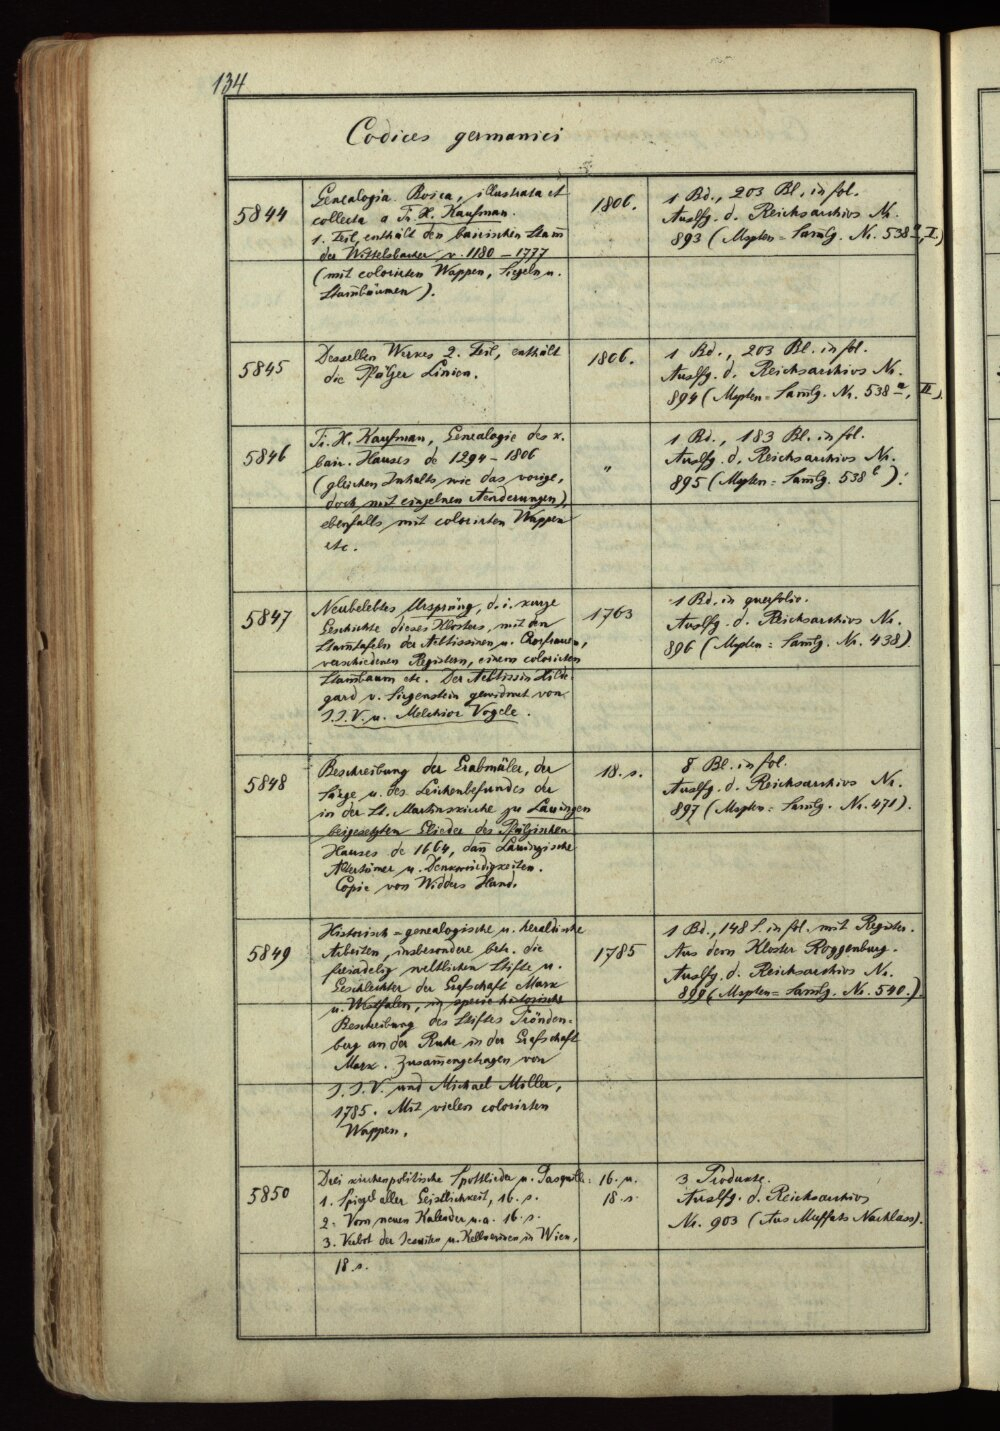 134
Codices germanici
5844
Genealogia Boica, illustrata et
collecta a Fr. X. Kaufman.
1. Teil, enthält den bairischen Stam̄
der Wittelsbacher v. 1180 – 1777
(mit colorirten Wappen, Siegeln u.
Stam̄bäumen).
1806.
1 Bd., 203 Bl. in fol.
Auslfg. d. Reichsarchivs Nr.
893 (Mspten = Sam̄lg. Nr. 538 a, I.)
5845
Desselben Werkes 2. Teil, enthält
die Pfälzer Linien.
1806.
1 Bd., 203 Bl. in fol.
Auslfg. d. Reichsarchivs Nr.
894 (Mspten = Sam̄lg. Nr. 538 a, II.)
5846
Fr. X. Kaufman, Genealogie des k.
bair. Hauses de 1294 – 1806
(gleichen Inhalts wie das vorige,
doch mit einzelnen Aenderungen),
ebenfalls mit colorirten Wappen
etc.
"
1 Bd., 183 Bl. in fol.
Auslfg. d. Reichsarchivs Nr.
895 (Mspten = Sam̄lg. 538 b).
5847
Neubelebtes Ursprüng, d. i. kurze
Geschichte dieses Klosters, mit den
Stam̄tafeln der Aebtissinen u. Chorfrauen,
verschiedenen Registern, einem colorirten
Stam̄baum etc. Der Aebtissin Hilde-
gard v. Siegenstein gewidmet von
J. J. V. u. Melchior Vogele.
1763
1 Bd. in querfolio.
Auslfg. d. Reichsarchivs Nr.
896 (Mspten = Sam̄lg. Nr. 438).
5848
Beschreibung der Grabmäler, der
Särge u. des Leichenbefundes der
in der St. Martinskirche zu Lauingen
beigesetzten Glieder des Pfälzischen
Hauses de 1664, dan̄ Lauingische
Altertümer u. Denkwürdigkeiten.
Copie von Widders Hand.
18. s.
8 Bl. in fol.
Auslfg. d. Reichsarchivs Nr.
897 (Mspten = Sam̄lg. Nr. 471).
5849
Historisch = genealogische u. heraldische
Arbeiten, insbesondere betr. die
freiadelig weltlichen Stifte u.
Geschlechter der Grafschaft Mark
u. Westfalen, in specie historische
Beschreibung des Stiftes Frönden-
berg an der Ruhr in der Grafschaft
Mark. Zusam̄engetragen von
J. J. V. und Michael Möller,
1785. Mit vielen colorirten
Wappen.
1785
1 Bd., 148 S. in fol. mit Register.
Aus dem Kloster Roggenburg.
Auslfg. d. Reichsarchivs Nr.
899 (Mspten = Sam̄lg. Nr. 540.)
5850
Drei kirchenpolitische Spottlieder u. Pasquille:
1. Spiegel aller Geistlichkeit, 16. s.
2. Vom neuen Kalender u. a. 16. s.
3. Verbot der Jesuiten u. Kellnerinen in Wien,
18. s.
16. u.
18. s.
3 Produkte.
Auslfg. d. Reichsarchivs
Nr. 903 (Aus Muffats Nachlass).